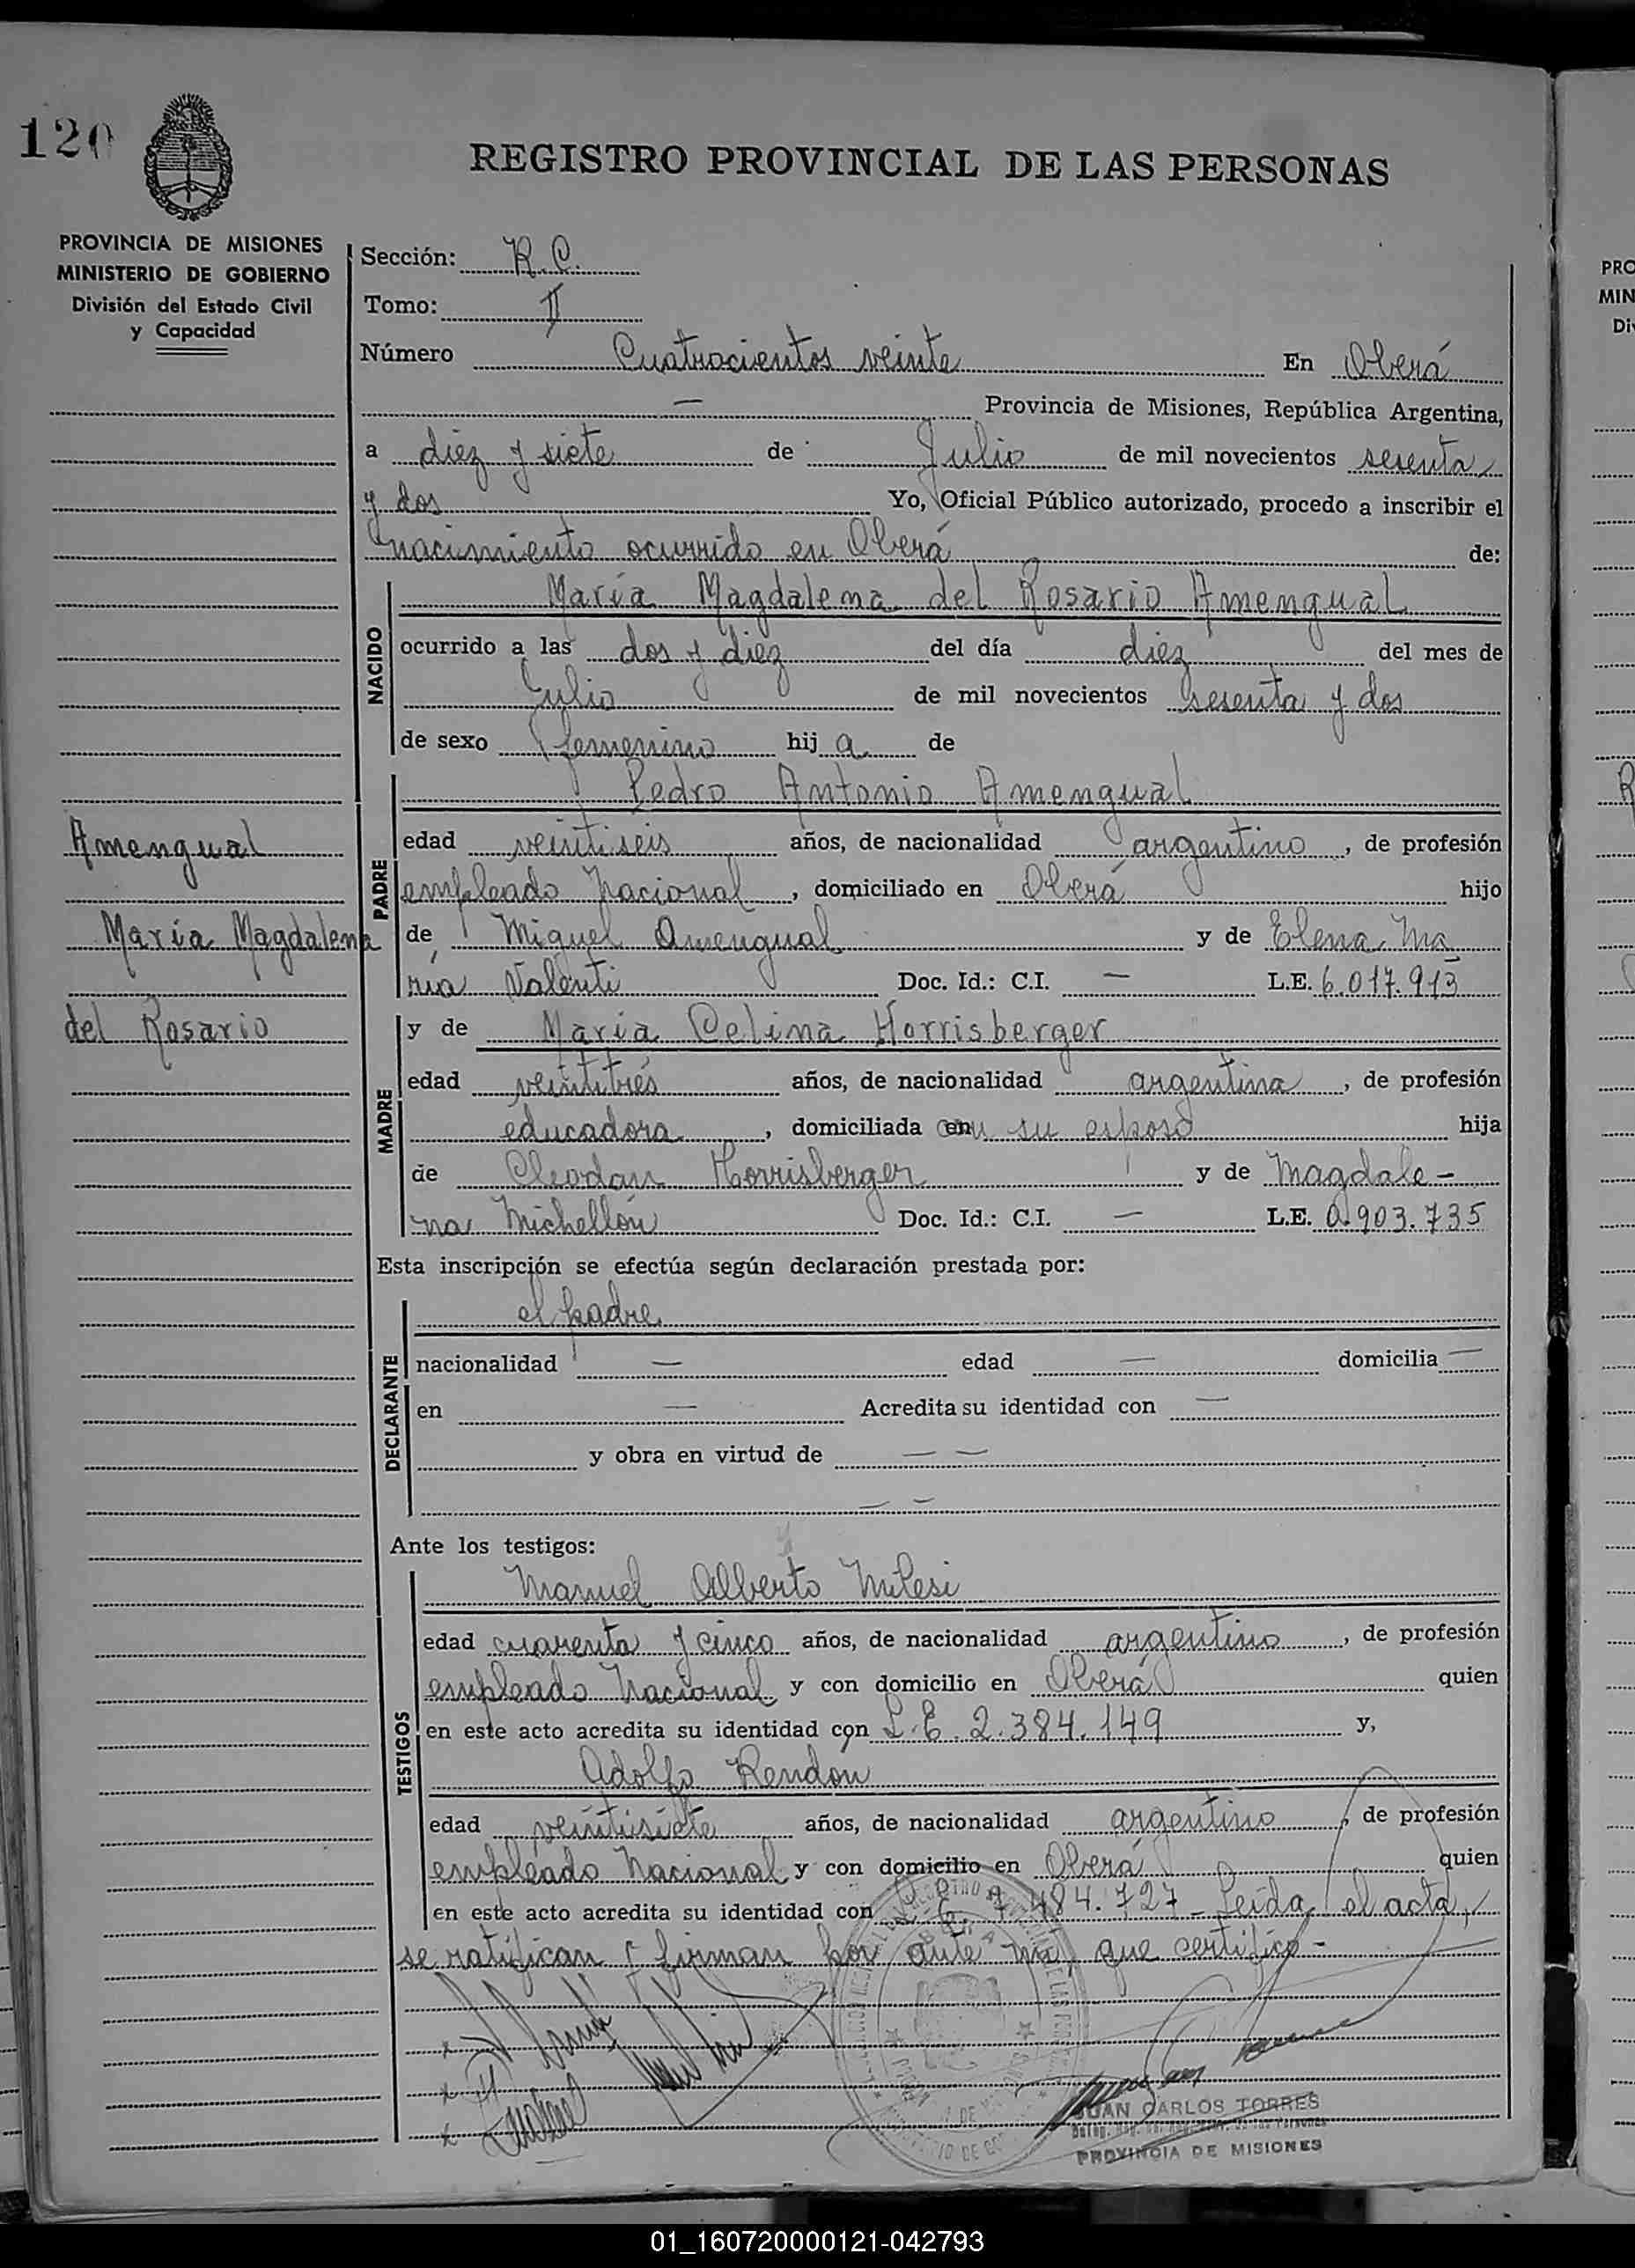 120
REGISTRO PROVINCIAL DE LAS PERSONAS
PROVINCIA DE MISIONES
MINISTERIO DE GOBIERNO
División del Estado Civil
y Capacidad
Sección: R.C.
Tomo: II
Número Cuatrocientos veinte En Oberá
— Provincia de Misiones, República Argentina,
a diez y siete de Julio de mil novecientos sesenta
y dos Yo, Oficial Público autorizado, procedo a inscribir el
nacimiento ocurrido en Oberá de:
NACIDO
María Magdalena del Rosario Amengual
ocurrido a las dos y diez del día diez del mes de
Julio de mil novecientos sesenta y dos
de sexo femenino hija de
PADRE
Pedro Antonio Amengual
edad veintiseis años, de nacionalidad argentino, de profesión
empleado Nacional, domiciliado en Oberá hijo
de Miguel Amengual y de Elena Ma
ría Valenti Doc. Id.: C.I. — L.E. 6.017.913
Amengual
María Magdalena
del Rosario
MADRE
y de María Celina Horrisberger
edad veintitrés años, de nacionalidad argentina, de profesión
educadora, domiciliada en su esposo hija
de Cleodan Horrisberger y de Magdale-
na Michellón Doc. Id.: C.I. — L.E. 0.903.735
Esta inscripción se efectúa según declaración prestada por:
DECLARANTE
el padre
nacionalidad — edad — domicilia —
en — Acredita su identidad con —
y obra en virtud de — —
— —
Ante los testigos:
TESTIGOS
Manuel Alberto Milesi
edad cuarenta y cinco años, de nacionalidad argentino, de profesión
empleado Nacional y con domicilio en Oberá quien
en este acto acredita su identidad con L.E. 2.384.149 y,
Adolfo Rendón
edad veintisiete años, de nacionalidad argentino, de profesión
empleado Nacional y con domicilio en Oberá quien
en este acto acredita su identidad con L.E. 7.484.727 - Leída el acta,
se ratifican y firman por ante mí, que certifico -
JUAN CARLOS TORRES
PROVINCIA DE MISIONES
01_160720000121-042793